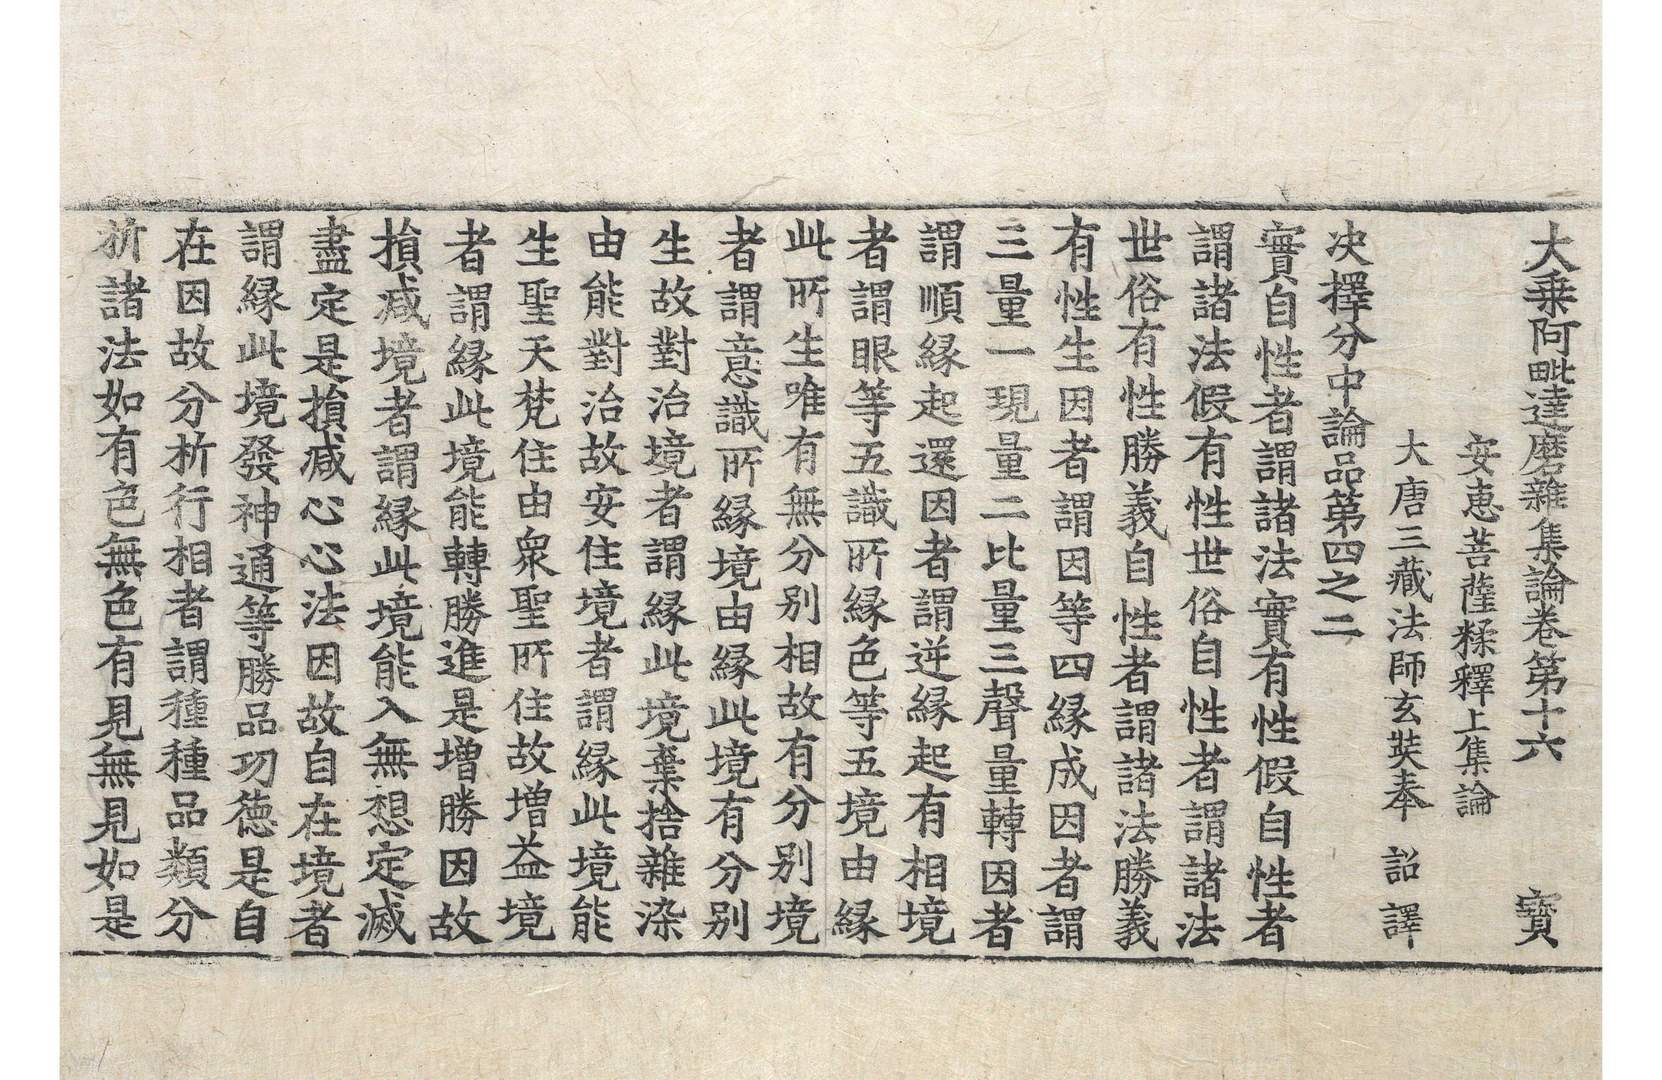 大乗阿毗達磨雜集論卷第十六 寳
安惠菩薩糅釋上集論
大唐三藏法師玄奘奉 詔 譯
決擇分中論品第四之二
實自性者謂諸法實有性假自性者
謂諸法假有性世俗自性者謂諸法
世俗有性勝義自性者謂諸法勝義
有性生因者謂因等四緣成因者謂
三量一現量二比量三聲量轉因者
謂順緣起還因者謂逆緣起有相境
者謂眼等五識所緣色等五境由緣
此所生唯有無分別相故有分別境
者謂意識所緣境由緣此境有分別
生故對治境者謂緣此境棄捨雜染
由能對治故安住境者謂緣此境能
生聖天梵住由衆聖所住故增益境
者謂緣此境能轉勝進是增勝因故
損減境者謂緣此境能入無想定滅
盡定是損減心心法因故自在境者
謂緣此境發神通等勝品功德是自
在因故分析行相者謂種種品類分
析諸法如有色無色有見無見如是